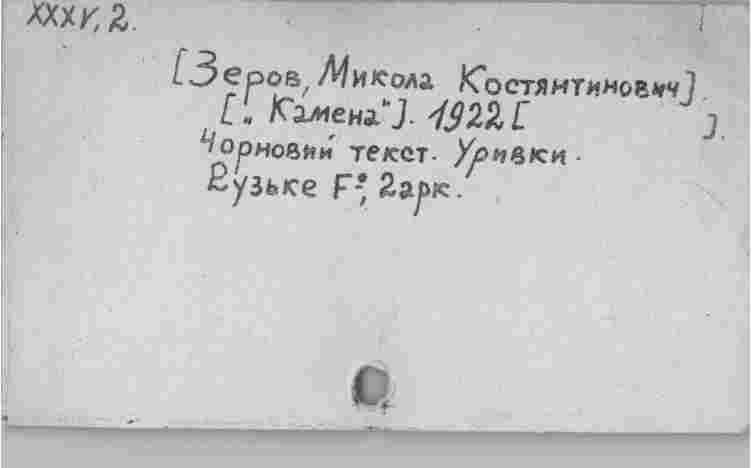 XXXV, 2.
[Зеров, Микола Костянтинович].
[„Камена"]. 1922 [ ].
Чорновий текст. Уривки.
Вузьке F°, 2 арк.